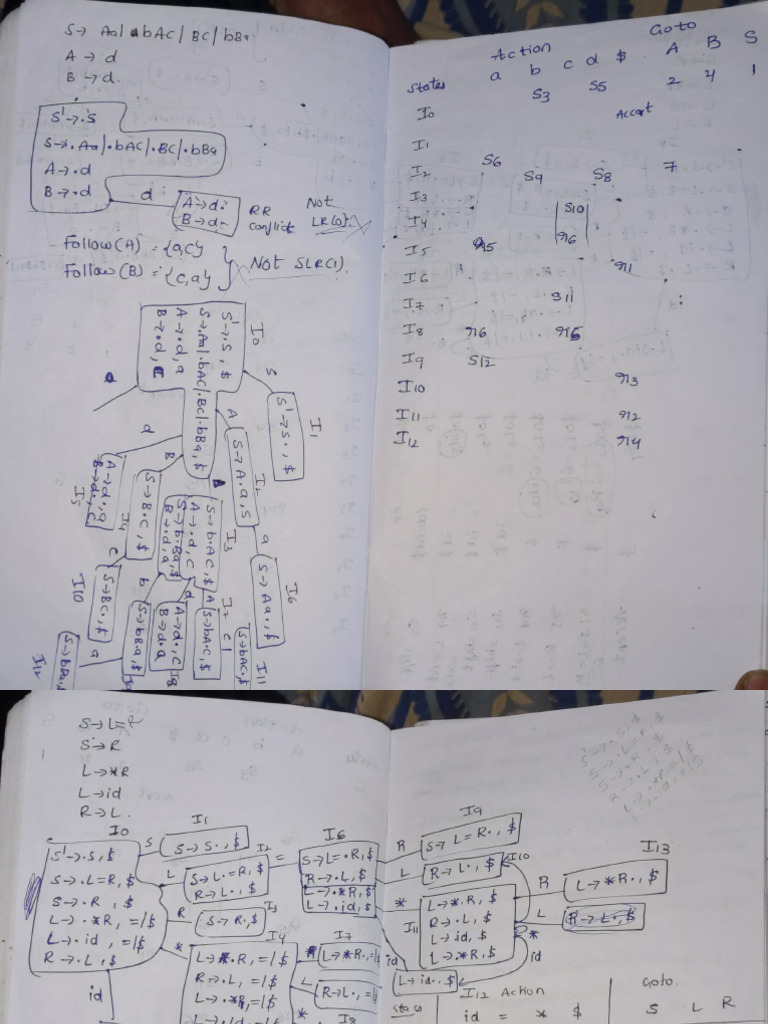 S → Aa | bAC | BC | bBa
A → d
B → d.
S' → .S
S → .Aa | .bAC | .BC | .bBa
A → .d
B → .d
d
A → d.
B → d.
RR conflict
Not LR(0).
Follow(A) = {a,c}
Follow(B) = {c,a}
NOT SLR(1).
I0
S' → .S, $
S → .Aa | .bAC | .BC | .bBa, $
A → .d, a
B → .d, C
S
I1
S' → S., $
A
I2
S → A.a, $
a
I6
S → Aa., $
I3
S → b.AC, $
A → .d, C
S → b.Ba, $
B → .d, a
A
S → bA.C, $
C
I11
S → bAC., $
d
A → d., C
B → d., a
I8
b
S → bB.a, $
a
I12
S → bBa., $
B
I4
S → B.C, $
C
I10
S → BC., $
d
I5
A → d., a
B → d., C
Action
Goto
States a b c d $ A B S
I0 S3 S5 2 4 1
I1 Accept
I2 S6
I3 S9 S8 7
I4 S10
I5 r5 r6
I6 r1
I7 S11
I8 r6 r5
I9 S12
I10 r3
I11 r2
I12 r4
S → L=R
S → R
L → *R
L → id
R → L.
I0
S' → .S, $
S → .L=R, $
S → .R, $
L → .*R, =|$
L → .id, =|$
R → .L, $
S
I1
S → S., $
L
I2
S → L.=R, $
R → L., $
R
I3
S → R., $
*
I4
L → *.R, =|$
R → .L, =|$
L → .*R, =|$
L → .id, =|$
id
=
I6
S → L=.R, $
R → .L, $
L → .*R, $
L → .id, $
R
I9
S → L=R., $
L
I10
R → L., $
*
I11
L → *.R, $
R → .L, $
L → .id, $
L → .*R, $
R
I13
L → *R., $
L
R → L., $
*
id
I7
L → *R., =|$
L
R → L., =|$
I8
*
id
L → id., $
I12
State
Action
id = * $
Goto.
S L R